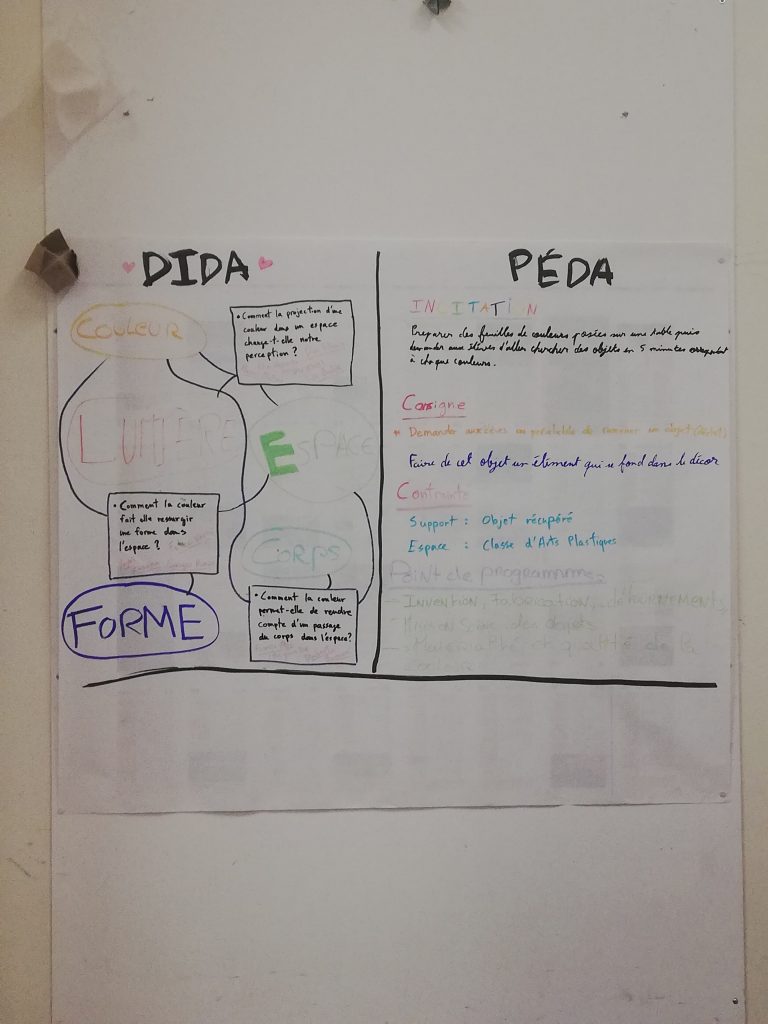 DIDA
COULEUR
• Comment la projection d'une
couleur dans un espace
change-t-elle notre
perception ?
LUMIÈRE
ESPACE
• Comment la couleur
fait elle ressurgir
une forme dans
l'espace ?
CORPS
FORME
• Comment la couleur
permet-elle de rendre
compte d'un passage
du corps dans l'espace?
PÉDA
INCITATION
Préparer des feuilles de couleurs posées sur une table puis
demander aux élèves d'aller chercher des objets en 5 minutes
à chaque couleurs.
Consigne
Demander au préalable de un objet
Faire de cet objet un élément qui se fond dans le décor
Contrainte
Support : Objet récupéré
Espace : Classe d'Arts Plastiques
Point de programme
- Invention, fabrication, détournements,
mise en scène des objets
- Matérialité et qualité de la
couleur